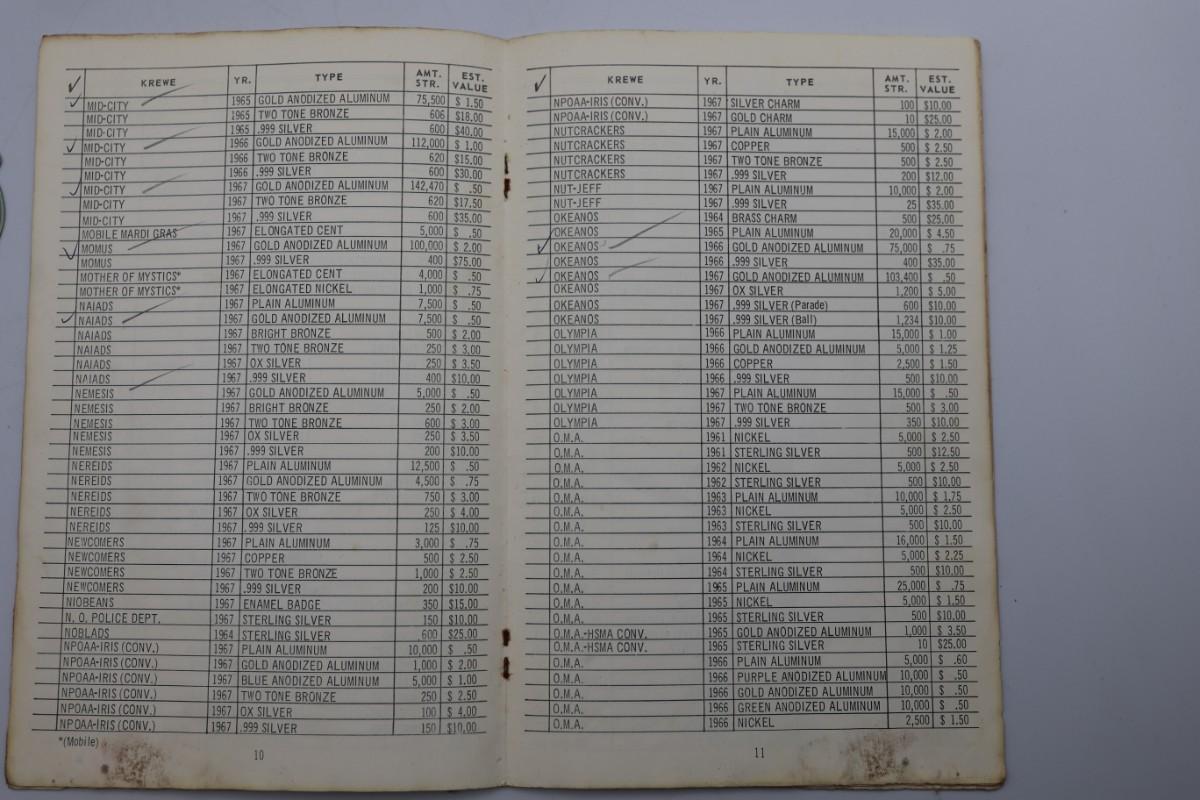 ✓ KREWE YR. TYPE AMT. STR. EST. VALUE
✓ MID-CITY 1965 GOLD ANODIZED ALUMINUM 75,500 $ 1.50
MID-CITY 1965 TWO TONE BRONZE 606 $18.00
MID-CITY 1965 .999 SILVER 600 $40.00
✓ MID-CITY 1966 GOLD ANODIZED ALUMINUM 112,000 $ 1.00
MID-CITY 1966 TWO TONE BRONZE 620 $15.00
MID-CITY 1966 .999 SILVER 600 $30.00
✓ MID-CITY 1967 GOLD ANODIZED ALUMINUM 142,470 $ .50
MID-CITY 1967 TWO TONE BRONZE 620 $17.50
MID-CITY 1967 .999 SILVER 600 $35.00
MOBILE MARDI GRAS 1967 ELONGATED CENT 5,000 $ .50
✓ MOMUS 1967 GOLD ANODIZED ALUMINUM 100,000 $ 2.00
MOMUS 1967 .999 SILVER 400 $75.00
MOTHER OF MYSTICS* 1967 ELONGATED CENT 4,000 $ .50
MOTHER OF MYSTICS* 1967 ELONGATED NICKEL 1,000 $ .75
NAIADS 1967 PLAIN ALUMINUM 7,500 $ .50
✓ NAIADS 1967 GOLD ANODIZED ALUMINUM 7,500 $ .50
NAIADS 1967 BRIGHT BRONZE 500 $ 2.00
NAIADS 1967 TWO TONE BRONZE 250 $ 3.00
NAIADS 1967 OX SILVER 250 $ 3.50
NAIADS 1967 .999 SILVER 400 $10.00
NEMESIS 1967 GOLD ANODIZED ALUMINUM 5,000 $ .50
NEMESIS 1967 BRIGHT BRONZE 250 $ 2.00
NEMESIS 1967 TWO TONE BRONZE 600 $ 3.00
NEMESIS 1967 OX SILVER 250 $ 3.50
NEMESIS 1967 .999 SILVER 200 $10.00
NEREIDS 1967 PLAIN ALUMINUM 12,500 $ .50
NEREIDS 1967 GOLD ANODIZED ALUMINUM 4,500 $ .75
NEREIDS 1967 TWO TONE BRONZE 750 $ 3.00
NEREIDS 1967 OX SILVER 250 $ 4.00
NEREIDS 1967 .999 SILVER 125 $10.00
NEWCOMERS 1967 PLAIN ALUMINUM 3,000 $ .75
NEWCOMERS 1967 COPPER 500 $ 2.50
NEWCOMERS 1967 TWO TONE BRONZE 1,000 $ 2.50
NEWCOMERS 1967 .999 SILVER 200 $10.00
NIOBEANS 1967 ENAMEL BADGE 350 $15.00
N. O. POLICE DEPT. 1967 STERLING SILVER 150 $10.00
NOBLADS 1964 STERLING SILVER 600 $25.00
NPOAA-IRIS (CONV.) 1967 PLAIN ALUMINUM 10,000 $ .50
NPOAA-IRIS (CONV.) 1967 GOLD ANODIZED ALUMINUM 1,000 $ 2.00
NPOAA-IRIS (CONV.) 1967 BLUE ANODIZED ALUMINUM 5,000 $ 1.00
NPOAA-IRIS (CONV.) 1967 TWO TONE BRONZE 250 $ 2.50
NPOAA-IRIS (CONV.) 1967 OX SILVER 100 $ 4.00
NPOAA-IRIS (CONV.) 1967 .999 SILVER 150 $10.00
*(Mobile)
10
✓ KREWE YR. TYPE AMT. STR. EST. VALUE
NPOAA-IRIS (CONV.) 1967 SILVER CHARM 100 $10.00
NPOAA-IRIS (CONV.) 1967 GOLD CHARM 10 $25.00
NUTCRACKERS 1967 PLAIN ALUMINUM 15,000 $ 2.00
NUTCRACKERS 1967 COPPER 500 $ 2.50
NUTCRACKERS 1967 TWO TONE BRONZE 500 $ 2.50
NUTCRACKERS 1967 .999 SILVER 200 $12.00
NUT-JEFF 1967 PLAIN ALUMINUM 10,000 $ 2.00
NUT-JEFF 1967 .999 SILVER 25 $35.00
OKEANOS 1964 BRASS CHARM 500 $25.00
OKEANOS 1965 PLAIN ALUMINUM 20,000 $ 4.50
✓ OKEANOS 1966 GOLD ANODIZED ALUMINUM 75,000 $ .75
OKEANOS 1966 .999 SILVER 400 $35.00
✓ OKEANOS 1967 GOLD ANODIZED ALUMINUM 103,400 $ .50
OKEANOS 1967 OX SILVER 1,200 $ 5.00
OKEANOS 1967 .999 SILVER (Parade) 600 $10.00
OKEANOS 1967 .999 SILVER (Ball) 1,234 $10.00
OLYMPIA 1966 PLAIN ALUMINUM 15,000 $ 1.00
OLYMPIA 1966 GOLD ANODIZED ALUMINUM 5,000 $ 1.25
OLYMPIA 1966 COPPER 2,500 $ 1.50
OLYMPIA 1966 .999 SILVER 500 $10.00
OLYMPIA 1967 PLAIN ALUMINUM 15,000 $ .50
OLYMPIA 1967 TWO TONE BRONZE 500 $ 3.00
OLYMPIA 1967 .999 SILVER 350 $10.00
O.M.A. 1961 NICKEL 5,000 $ 2.50
O.M.A. 1961 STERLING SILVER 500 $12.50
O.M.A. 1962 NICKEL 5,000 $ 2.50
O.M.A. 1962 STERLING SILVER 500 $10.00
O.M.A. 1963 PLAIN ALUMINUM 10,000 $ 1.75
O.M.A. 1963 NICKEL 5,000 $ 2.50
O.M.A. 1963 STERLING SILVER 500 $10.00
O.M.A. 1964 PLAIN ALUMINUM 16,000 $ 1.50
O.M.A. 1964 NICKEL 5,000 $ 2.25
O.M.A. 1964 STERLING SILVER 500 $10.00
O.M.A. 1965 PLAIN ALUMINUM 25,000 $ .75
O.M.A. 1965 NICKEL 5,000 $ 1.50
O.M.A. 1965 STERLING SILVER 500 $10.00
O.M.A.-HSMA CONV. 1965 GOLD ANODIZED ALUMINUM 1,000 $ 3.50
O.M.A.-HSMA CONV. 1965 STERLING SILVER 10 $25.00
O.M.A. 1966 PLAIN ALUMINUM 5,000 $ .60
O.M.A. 1966 PURPLE ANODIZED ALUMINUM 10,000 $ .50
O.M.A. 1966 GOLD ANODIZED ALUMINUM 10,000 $ .50
O.M.A. 1966 GREEN ANODIZED ALUMINUM 10,000 $ .50
O.M.A. 1966 NICKEL 2,500 $ 1.50
11